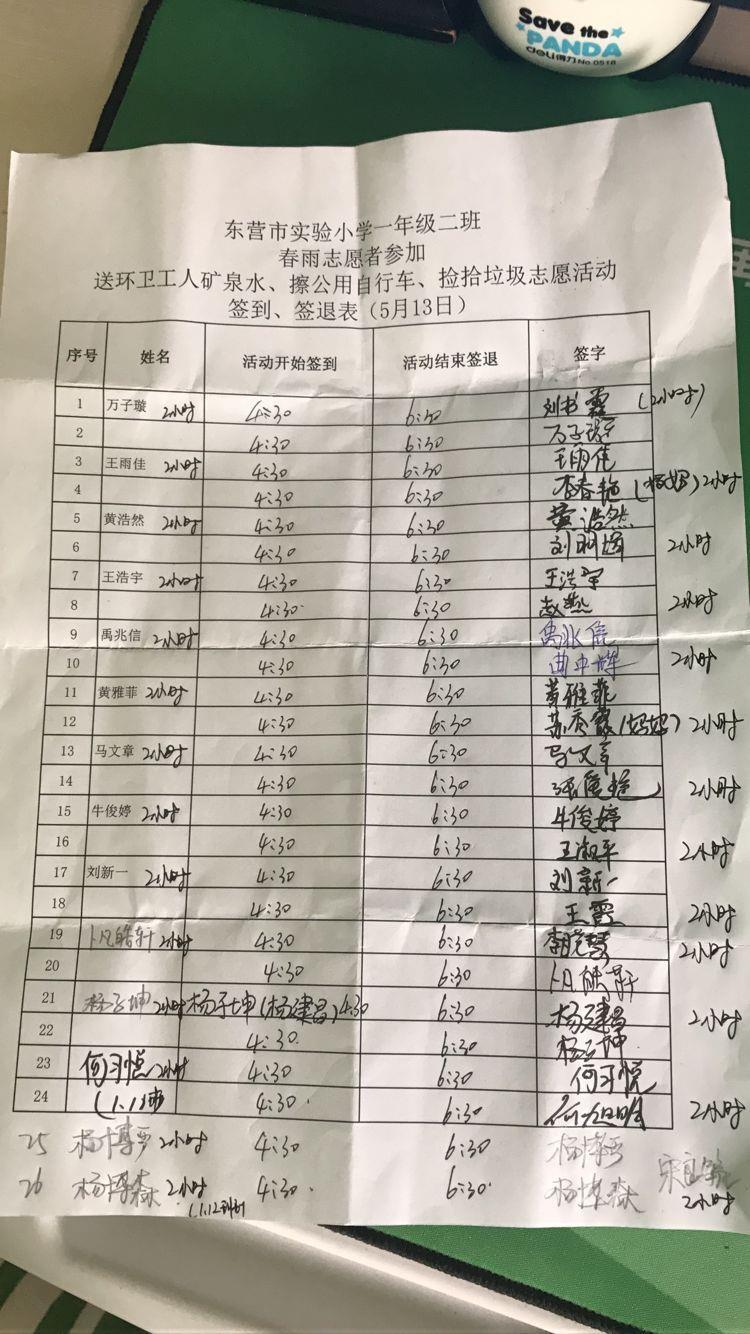 Save the
PANDA
deli得力No.0518
东营市实验小学一年级二班
春雨志愿者参加
送环卫工人矿泉水、擦公用自行车、捡拾垃圾志愿活动
签到、签退表（5月13日）
序号 姓名 活动开始签到 活动结束签退 签字
1 万子璇 2小时 4:30 6:30 刘书霞 (2小时)
2 4:30 6:30 万子璇
3 王雨佳 2小时 4:30 6:30 王雨佳
4 4:30 6:30 李春艳 2小时
5 黄浩然 2小时 4:30 6:30 黄浩然
6 4:30 6:30 刘明 2小时
7 王浩宇 2小时 4:30 6:30 王浩宇
8 4:30 6:30 赵燕 2小时
9 禹兆信 2小时 4:30 6:30 禹兆信
10 4:30 6:30 2小时
11 黄雅菲 2小时 4:30 6:30 黄雅菲
12 4:30 6:30 苏秀霞(妈妈) 2小时
13 马文章 2小时 4:30 6:30 马文章
14 4:30 6:30 2小时
15 牛俊婷 2小时 4:30 6:30 牛俊婷
16 4:30 6:30 王淑平 2小时
17 刘新一 2小时 4:30 6:30 刘新一
18 4:30 6:30 王霞 2小时
19 卜凡皓轩 2小时 4:30 6:30 2小时
20 4:30 6:30 卜凡皓轩
21 杨子坤 2小时 杨子坤(杨建昌) 4:30 6:30 杨建昌 2小时
22 4:30 6:30 杨子坤
23 何习悦 2小时 4:30 6:30 何习悦
24 4:30 6:30 何旭明 2小时
25 杨博 2小时 4:30 6:30 杨博
26 杨博淼 2小时 4:30 6:30 杨博淼 2小时